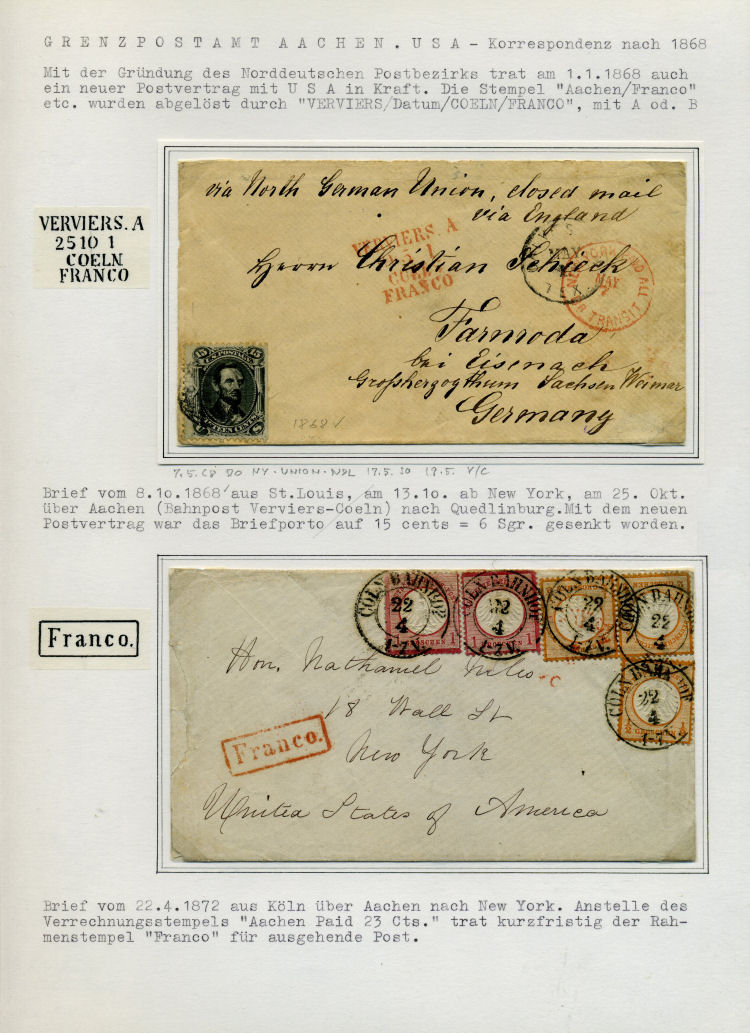 GRENZPOSTAMT AACHEN. USA - Korrespondenz nach 1868
Mit der Gründung des Norddeutschen Postbezirks trat am 1.1.1868 auch
ein neuer Postvertrag mit U S A in Kraft. Die Stempel "Aachen/Franco"
etc. wurden abgelöst durch "VERVIERS/Datum/COELN/FRANCO", mit A od. B
VERVIERS. A
25 10 1
COELN
FRANCO
via North German Union, closed mail
via England
VERVIERS. A
1
COELN
FRANCO
Herrn Christian Schieck
MAY
NEW YORK
MAY
TRANSIT
Farnroda
bei Eisenach
Großherzogthum Sachsen Weimar
Germany
15 U.S. POSTAGE 15
FIFTEEN CENTS
1868
7.5.68 DO NY-UNION-NDL 17.5. SO 19.5. V/C
Brief vom 8.10.1868 aus St.Louis, am 13.10. ab New York, am 25. Okt.
über Aachen (Bahnpost Verviers-Coeln) nach Quedlinburg.Mit dem neuen
Postvertrag war das Briefporto auf 15 cents = 6 Sgr. gesenkt worden.
Franco.
CÖLN BAHNHOF
22
4
1-7V.
CÖLN BAHNHOF
22
4
1-7V.
CÖLN BAHNHOF
22
4
1-7V.
CÖLN BAHNHOF
22
4
CÖLN BAHNHOF
22
4
1-7V.
Hon. Nathaniel Niles
18 Wall St
Franco.
New York
United States of America
Brief vom 22.4.1872 aus Köln über Aachen nach New York. Anstelle des
Verrechnungsstempels "Aachen Paid 23 Cts." trat kurzfristig der Rah-
menstempel "Franco" für ausgehende Post.